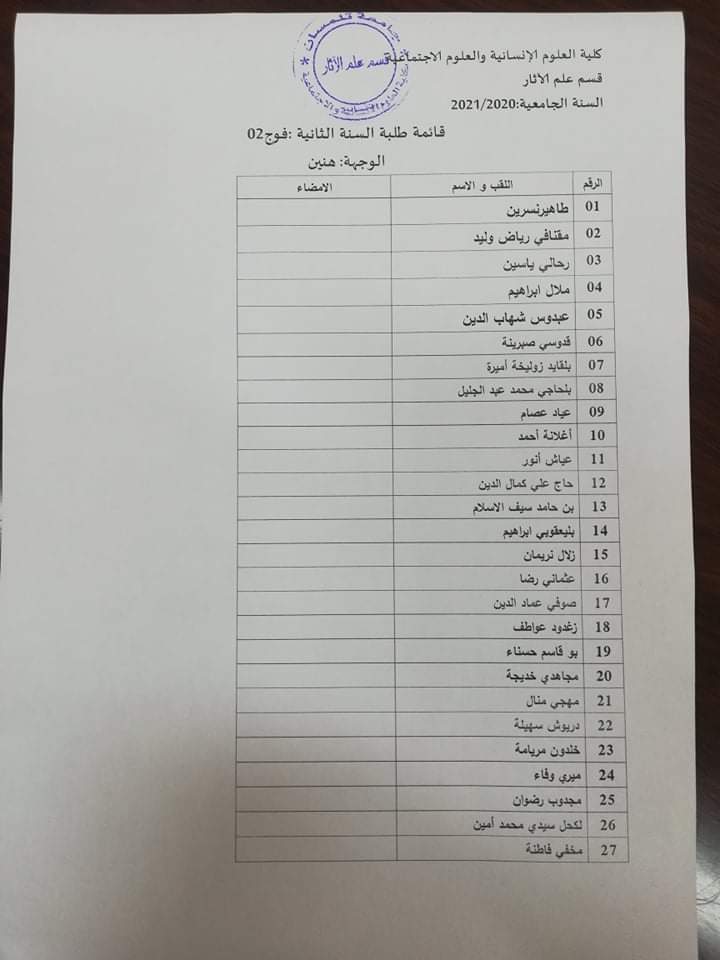 جامعة تلمسان
قسم علم الآثار
كلية العلوم الإنسانية والعلوم الاجتماعية
كلية العلوم الإنسانية والعلوم الاجتماعية
قسم علم الاثار
السنة الجامعية:2021/2020
قائمة طلبة السنة الثانية :فوج02
الوجهة: هنين
الرقم اللقب و الاسم الامضاء
01 طاهيرنسرين
02 مقنافي رياض وليد
03 رحالي ياسين
04 ملال ابراهيم
05 عبدوس شهاب الدين
06 قدوسي صبرينة
07 بلقايد زوليخة أميرة
08 بلحاجي محمد عبد الجليل
09 عياد عصام
10 أغلانة أحمد
11 عياش أنور
12 حاج علي كمال الدين
13 بن حامد سيف الاسلام
14 بليعقوبي ابراهيم
15 زلال نريمان
16 عثماني رضا
17 صوفي عماد الدين
18 زغدود عواطف
19 بو قاسم حسناء
20 مجاهدي خديجة
21 مهجي منال
22 دريوش سهيلة
23 خلدون مريامة
24 ميري وفاء
25 مجدوب رضوان
26 لكحل سيدي محمد أمين
27 مخفي فاطنة